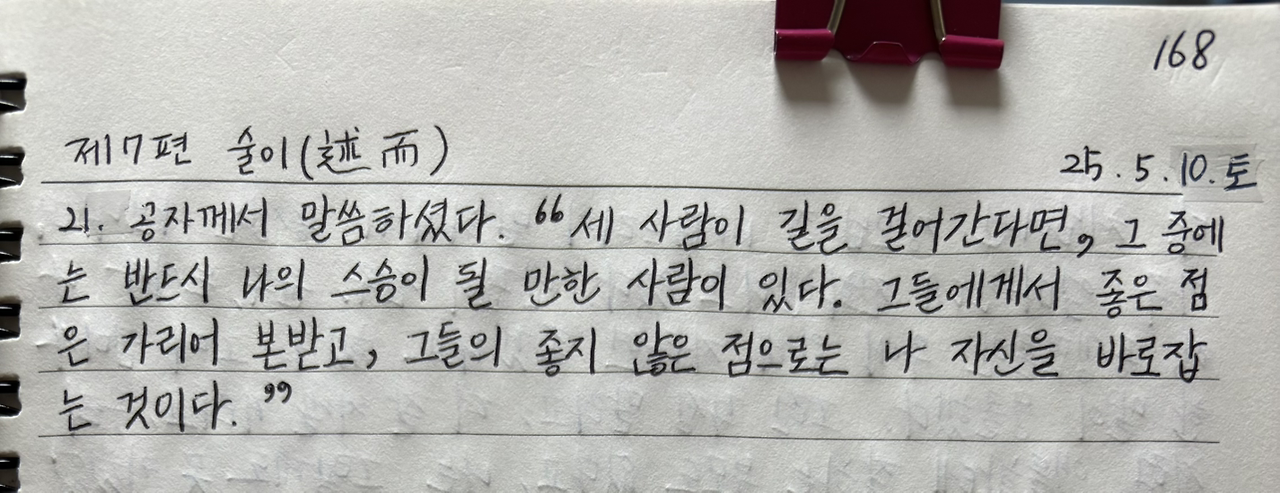 168
제17편 술이(述而)
25.5.10.토
21. 공자께서 말씀하셨다. “세 사람이 길을 걸어간다면, 그 중에
는 반드시 나의 스승이 될 만한 사람이 있다. 그들에게서 좋은 점
은 가리어 본받고, 그들의 좋지 않은 점으로는 나 자신을 바로잡
는 것이다.”